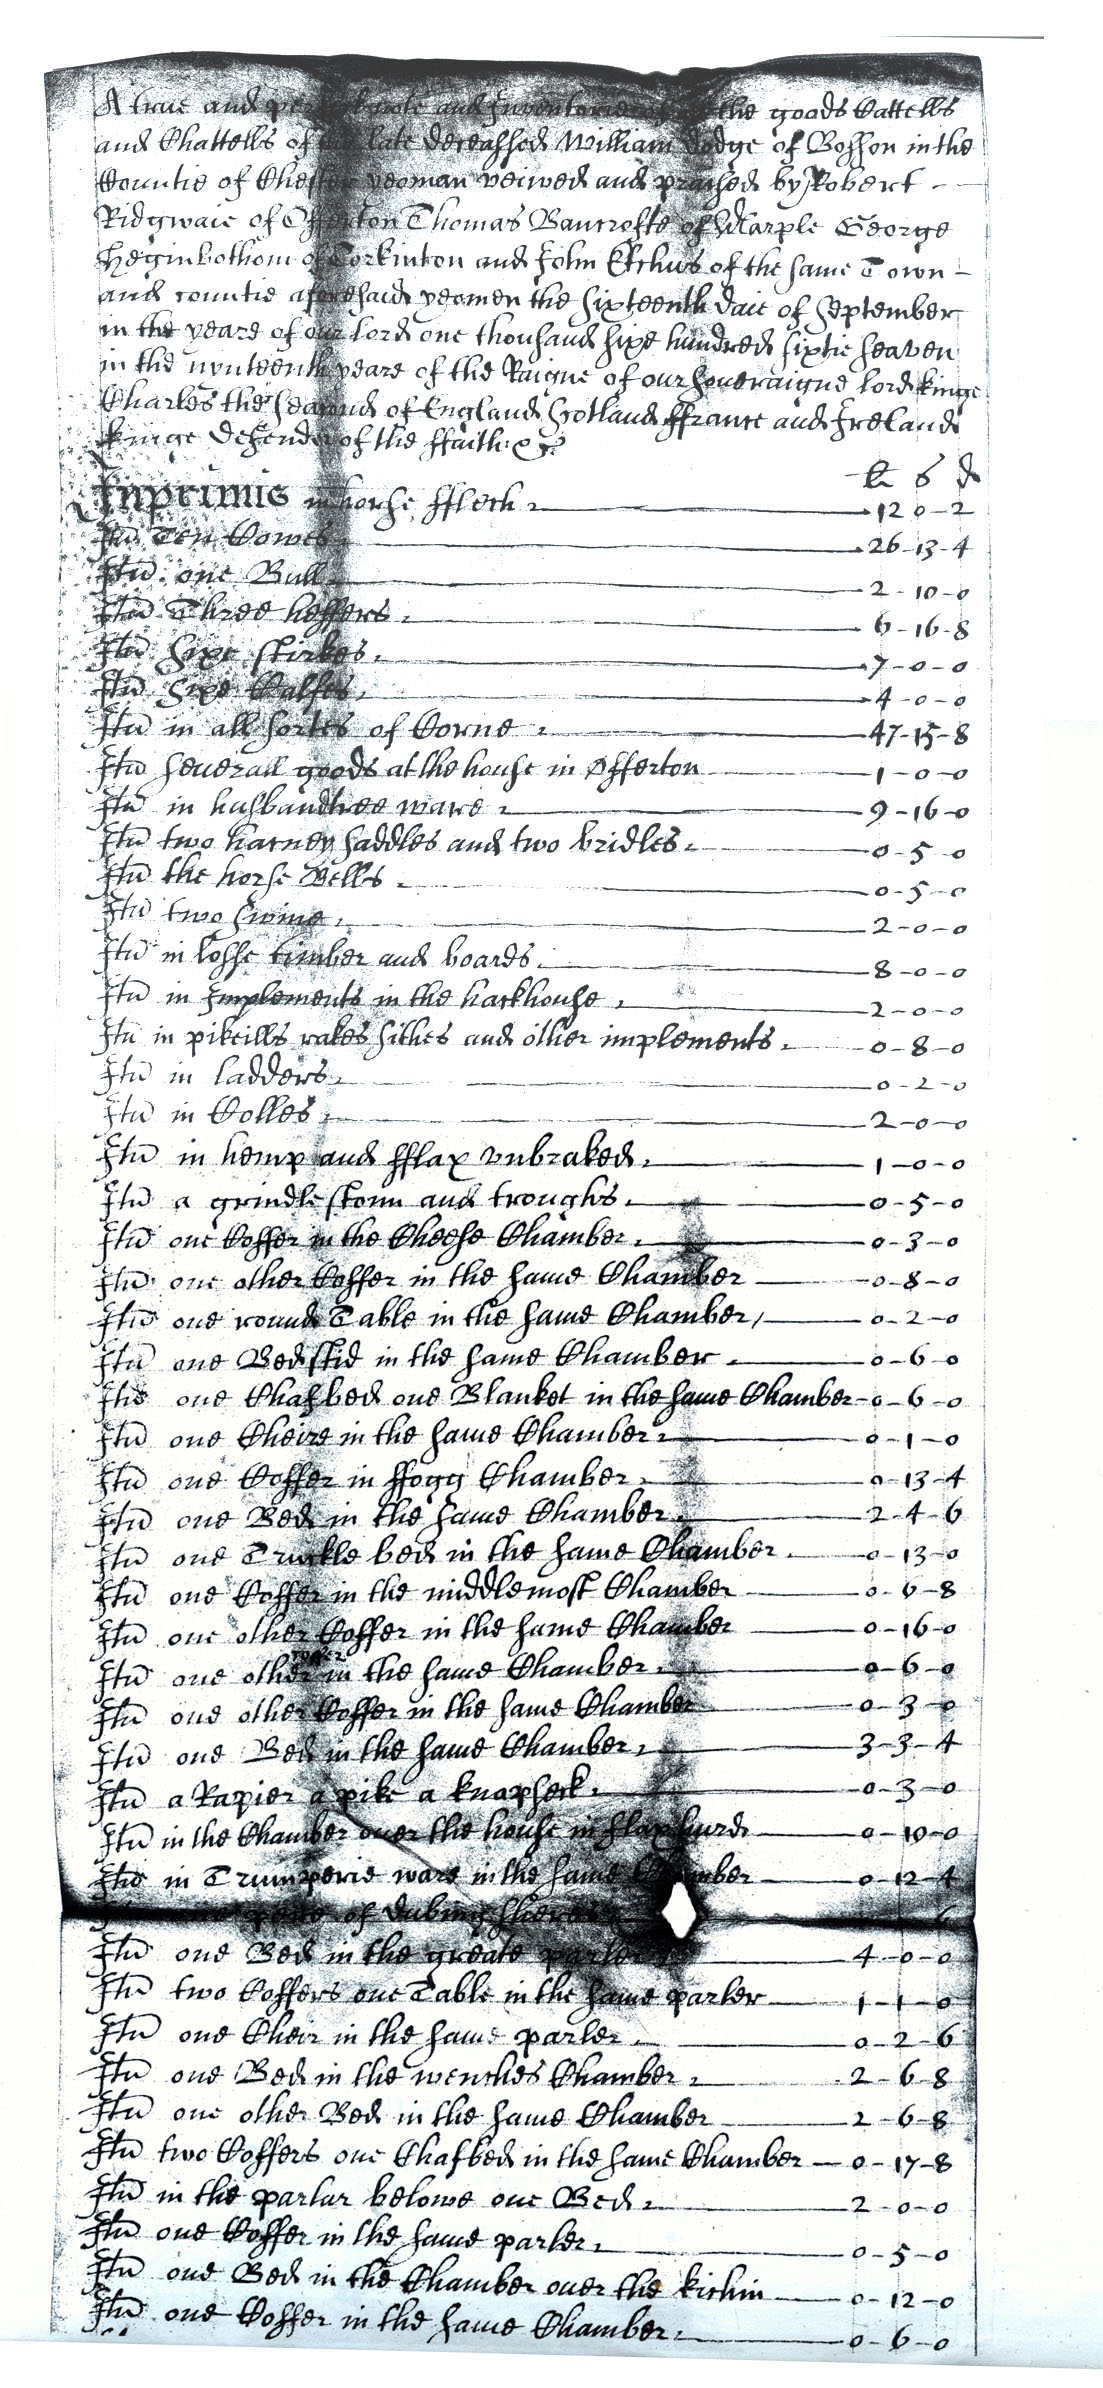 A true and perfect note and Inventorie of the goods Cattells
and Chattells of the late deceassed William Dodge of Bosson in the
Countie of Chester yeoman veiwed and praised by Robert
Ridgwaie of Offerton Thomas Bancrofte of Marple George
Heginbothom of Torkinton and John Etchus of the same Town
and countie aforesaid yeomen the sixteenth daie of September
in the yeare of our lord one thousand sixe hundred sixtie seaven
in the nynteenth yeare of the Raigne of our soueraigne lord kinge
Charles the seacond of England Scotland ffrance and Ireland
kinge defender of the ffaith &c
li s d
Inprimis in horse fflesh 12 0-2
Itm Ten Cowes 26-13-4
Itm one Bull 2-10-0
Itm Three heffers 6-16-8
Itm Sixe stirkes 7-0-0
Itm Sixe Calfes 4-0-0
Itm in all sortes of Corne 47-15-8
Itm seuerall goods at the house in Offerton 1-0-0
Itm in husbandtree ware 9-16-0
Itm two hacney saddles and two bridles 0-5-0
Itm the horse Bells 0-5-0
Itm two swine 2-0-0
Itm in losse timber and boards 8-0-0
Itm in Implements in the backhouse 2-0-0
Itm in pikeills rakes sithes and other implements 0-8-0
Itm in ladders 0-2-0
Itm in Colles 2-0-0
Itm in hemp and fflax vnbraked 1-0-0
Itm a grindlestonn and troughs 0-5-0
Itm one Coffer in the Cheese Chamber 0-3-0
Itm one other Coffer in the same Chamber 0-8-0
Itm one round Table in the same Chamber 0-2-0
Itm one Bedstid in the same Chamber 0-6-0
Itm one Chafbed one Blanket in the same Chamber 0-6-0
Itm one Cheire in the same Chamber 0-1-0
Itm one Coffer in ffogg Chamber 0-13-4
Itm one Bed in the same Chamber 2-4-6
Itm one Truckle bed in the same Chamber 0-13-0
Itm one Coffer in the middlemost Chamber 0-6-8
Itm one other Coffer in the same Chamber 0-16-0
Itm one other coffer in the same Chamber 0-6-0
Itm one other Coffer in the same Chamber 0-3-0
Itm one Bed in the same Chamber 3-3-4
Itm a Rapier a pike a knapseck 0-3-0
Itm in the Chamber ouer the house in flax hurd 0-10-0
Itm in Trumperie ware in the same Chamber 0-12-4
of dubing 6
Itm one Bed in the greate parler 4-0-0
Itm two Coffers one Table in the same parler 1-1-0
Itm one Cheir in the same parler 0-2-6
Itm one Bed in the wenches Chamber 2-6-8
Itm one other Bed in the same Chamber 2-6-8
Itm two Coffers one Chafbed in the same Chamber 0-17-8
Itm in the parlur belowe one Bed 2-0-0
Itm one Coffer in the same parler 0-5-0
Itm one Bed in the Chamber ouer the kichin 0-12-0
Itm one Coffer in the same Chamber 0-6-0